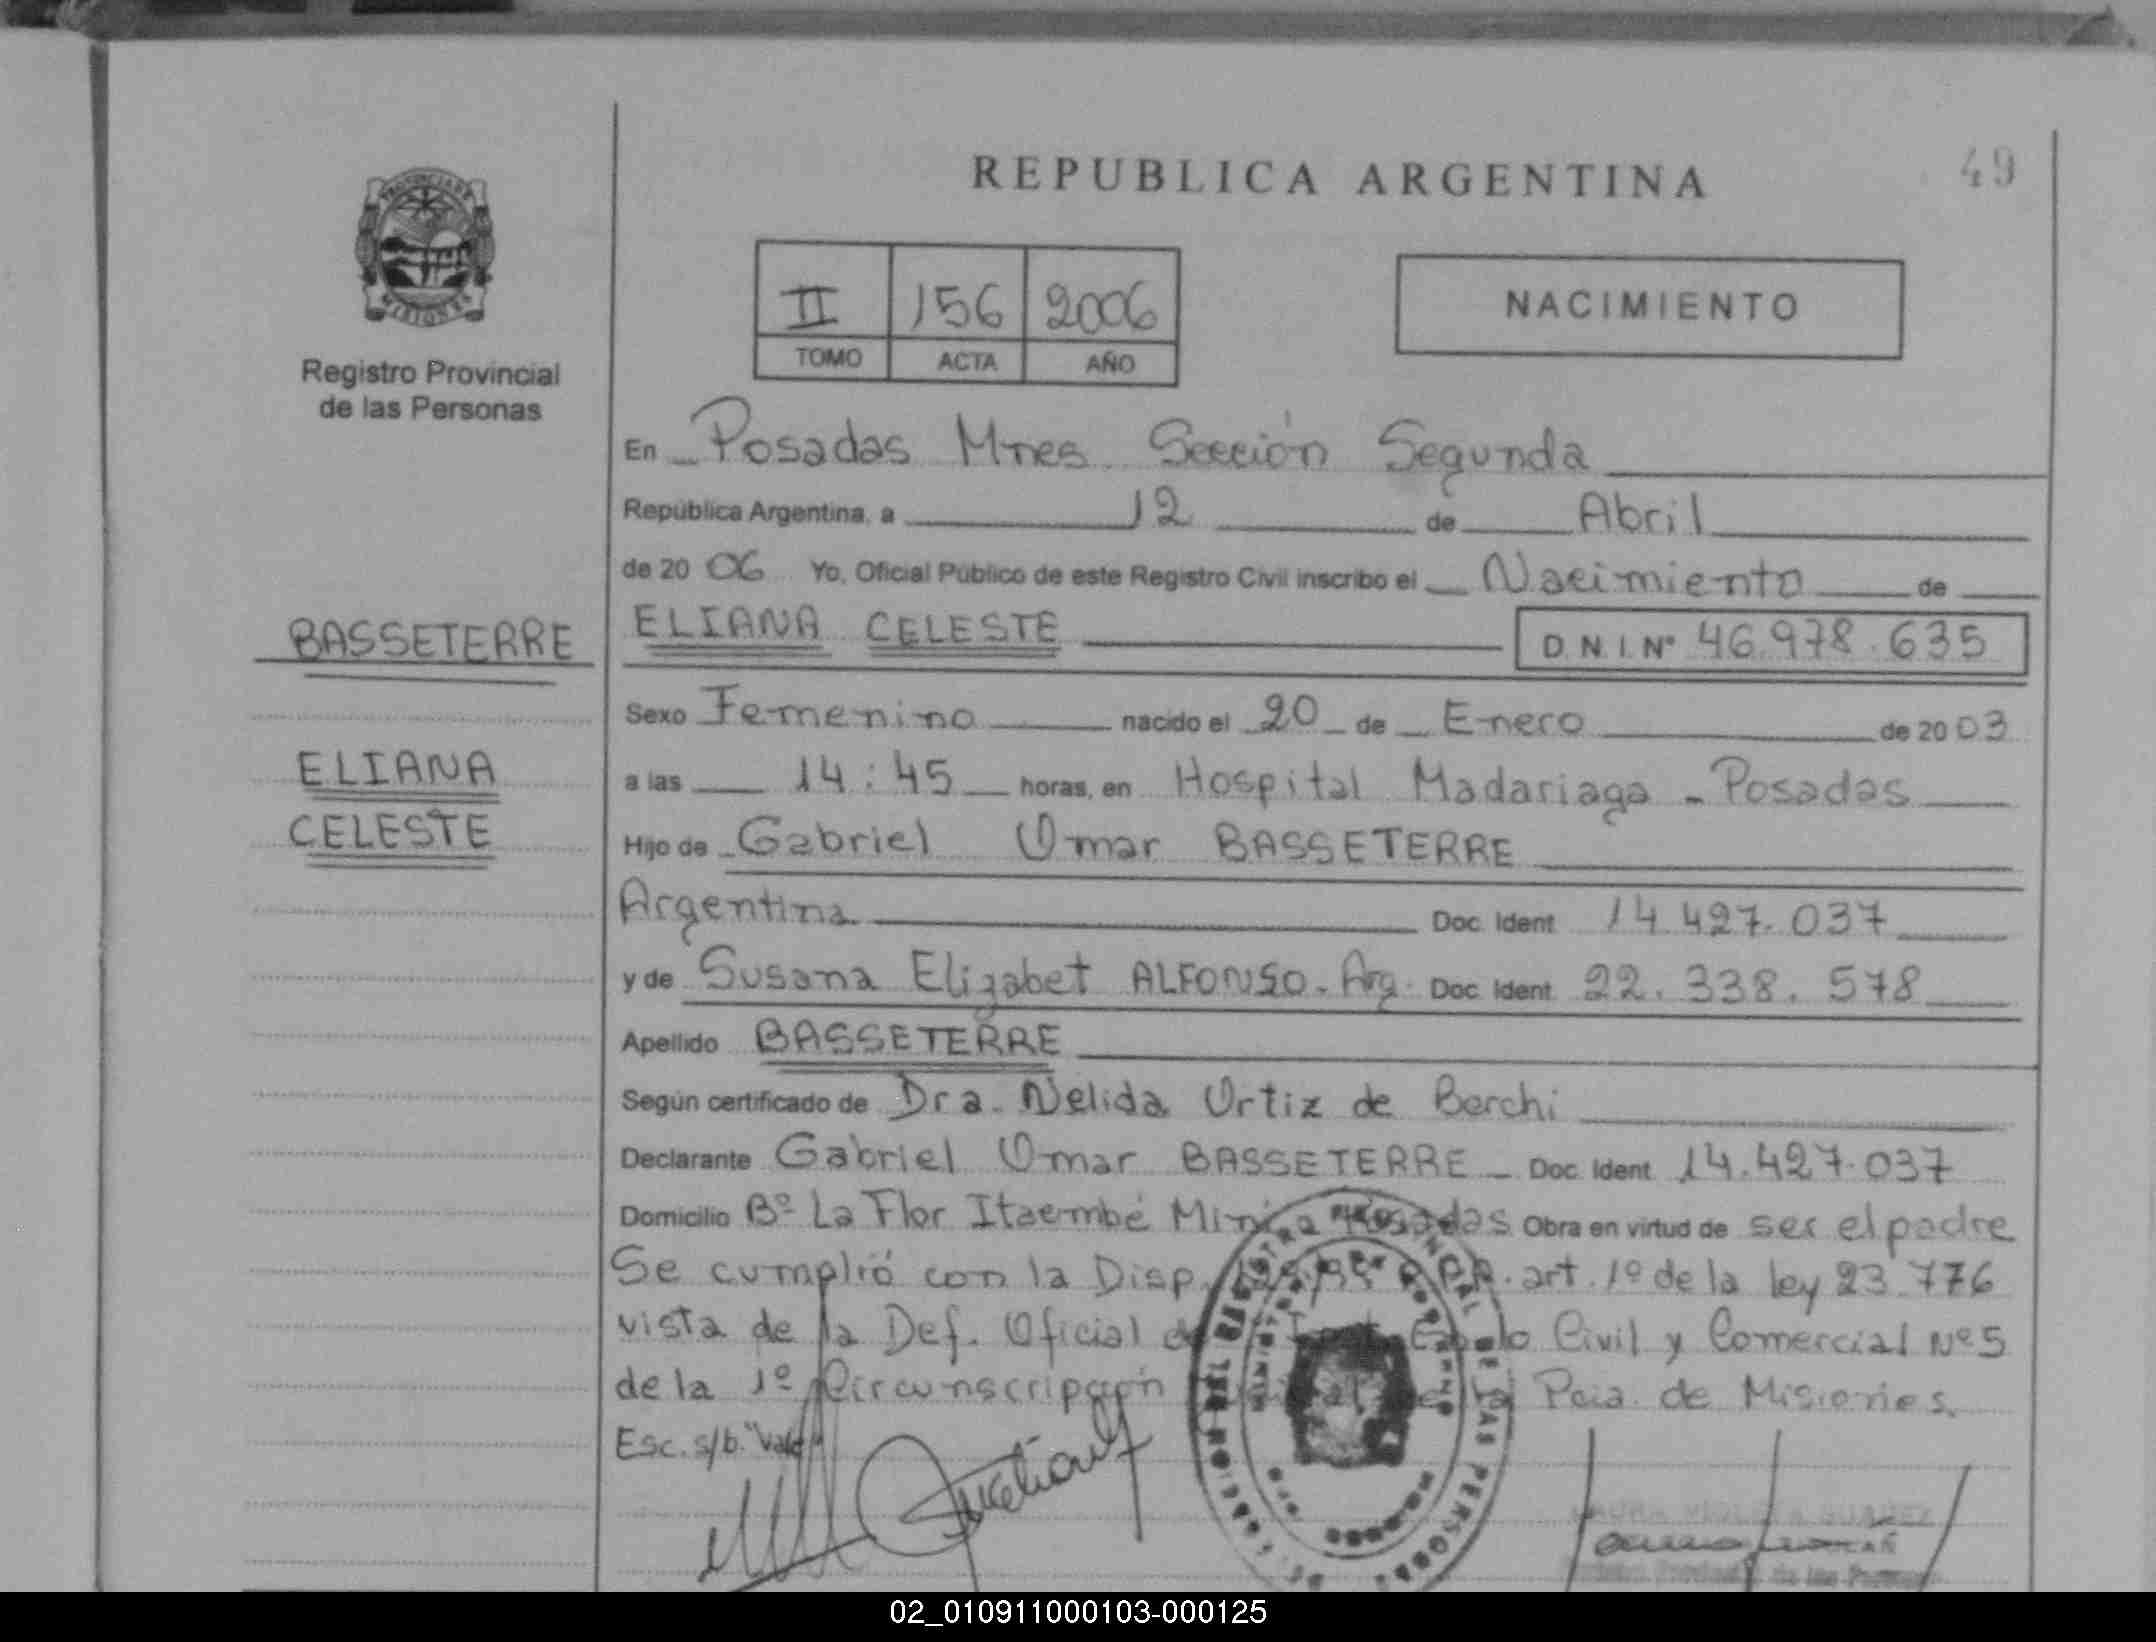 REPUBLICA ARGENTINA
49
PROVINCIA DE
MISIONES
Registro Provincial
de las Personas
II 156 2006
TOMO ACTA AÑO
NACIMIENTO
En Posadas Mnes. Sección Segunda
República Argentina, a 12 de Abril
de 20 06 Yo, Oficial Público de este Registro Civil inscribo el Nacimiento de
BASSETERRE
ELIANA CELESTE D.N.I. Nº 46.978.635
Sexo Femenino nacido el 20 de Enero de 20 03
ELIANA
CELESTE
a las 14:45 horas, en Hospital Madariaga - Posadas
Hijo de Gabriel Omar BASSETERRE
Argentina Doc. Ident. 14.427.037
y de Susana Elizabet ALFONSO. Arg. Doc. Ident. 22.338.578
Apellido BASSETERRE
Según certificado de Dra. Nelida Ortiz de Berchi
Declarante Gabriel Omar BASSETERRE - Doc. Ident. 14.427.037
Domicilio Bº La Flor Itaembé Posadas Obra en virtud de ser el padre
Se cumplió con la Disp. art. 1º de la ley 23.776
vista de la Def. Oficial Civil y Comercial Nº 5
de la 1º Circunscripción Pcia. de Misiones.
Esc. s/b. "Vale"
02_010911000103-000125